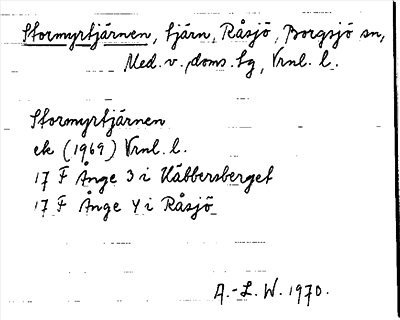 Stormyrtjärnen, tjärn, Råsjö, Borgsjö sn,
Med. v. doms. tg, Vrnl. l.
Stormyrtjärnen
ek (1969) Vrnl. l.
17 F Ånge 3 i Käbbersberget
17 F Ånge 4 i Råsjö
A.-L. W. 1970.